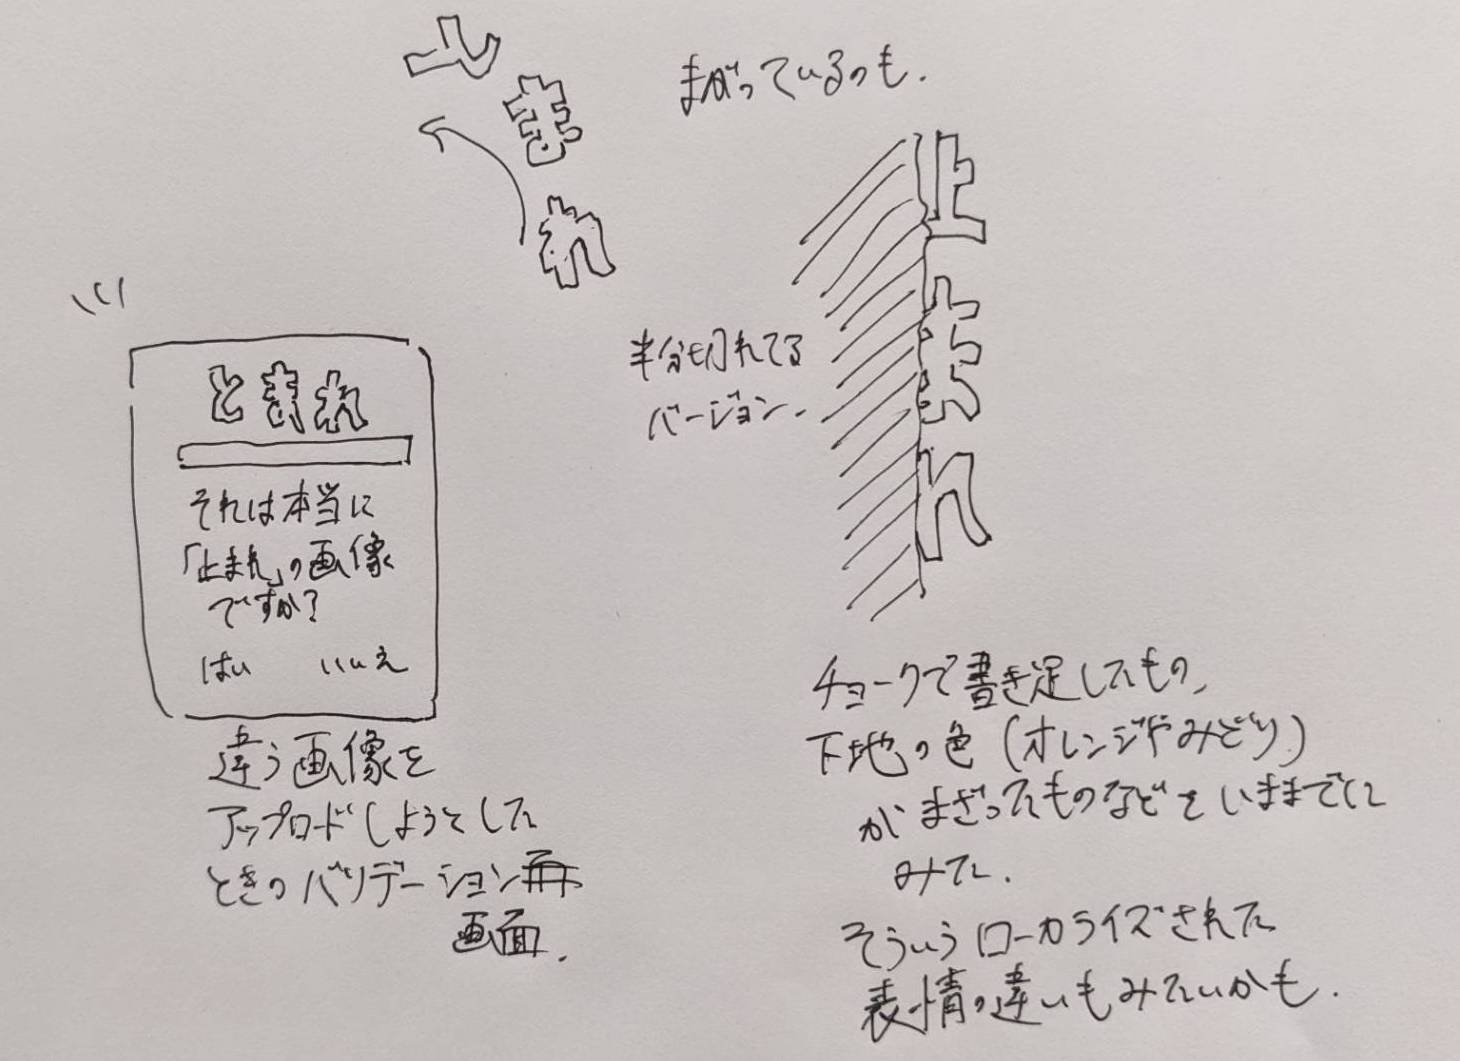 とまれ
まがっているのも.
止まれ
半分切れてる
バージョン.
とまれ
それは本当に
「止まれ」の画像
ですか?
はい いいえ
違う画像を
アップロードしようとした
ときのバリデーション
画面.
チョークで書き足したもの、
下地の色(オレンジやみどり)
がまざったものなどをいままでに
みた.
そういうローカライズされた
表情の違いもみたいかも.